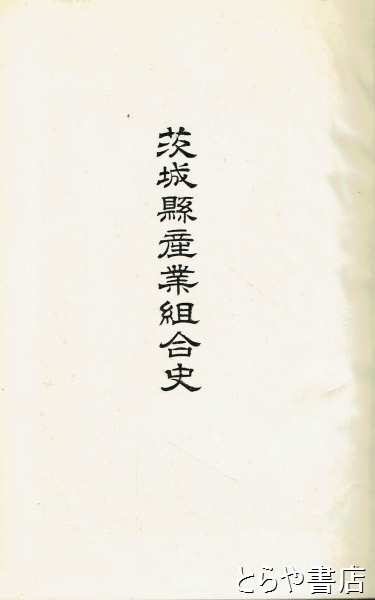 茨城縣産業組合史
とらや書店